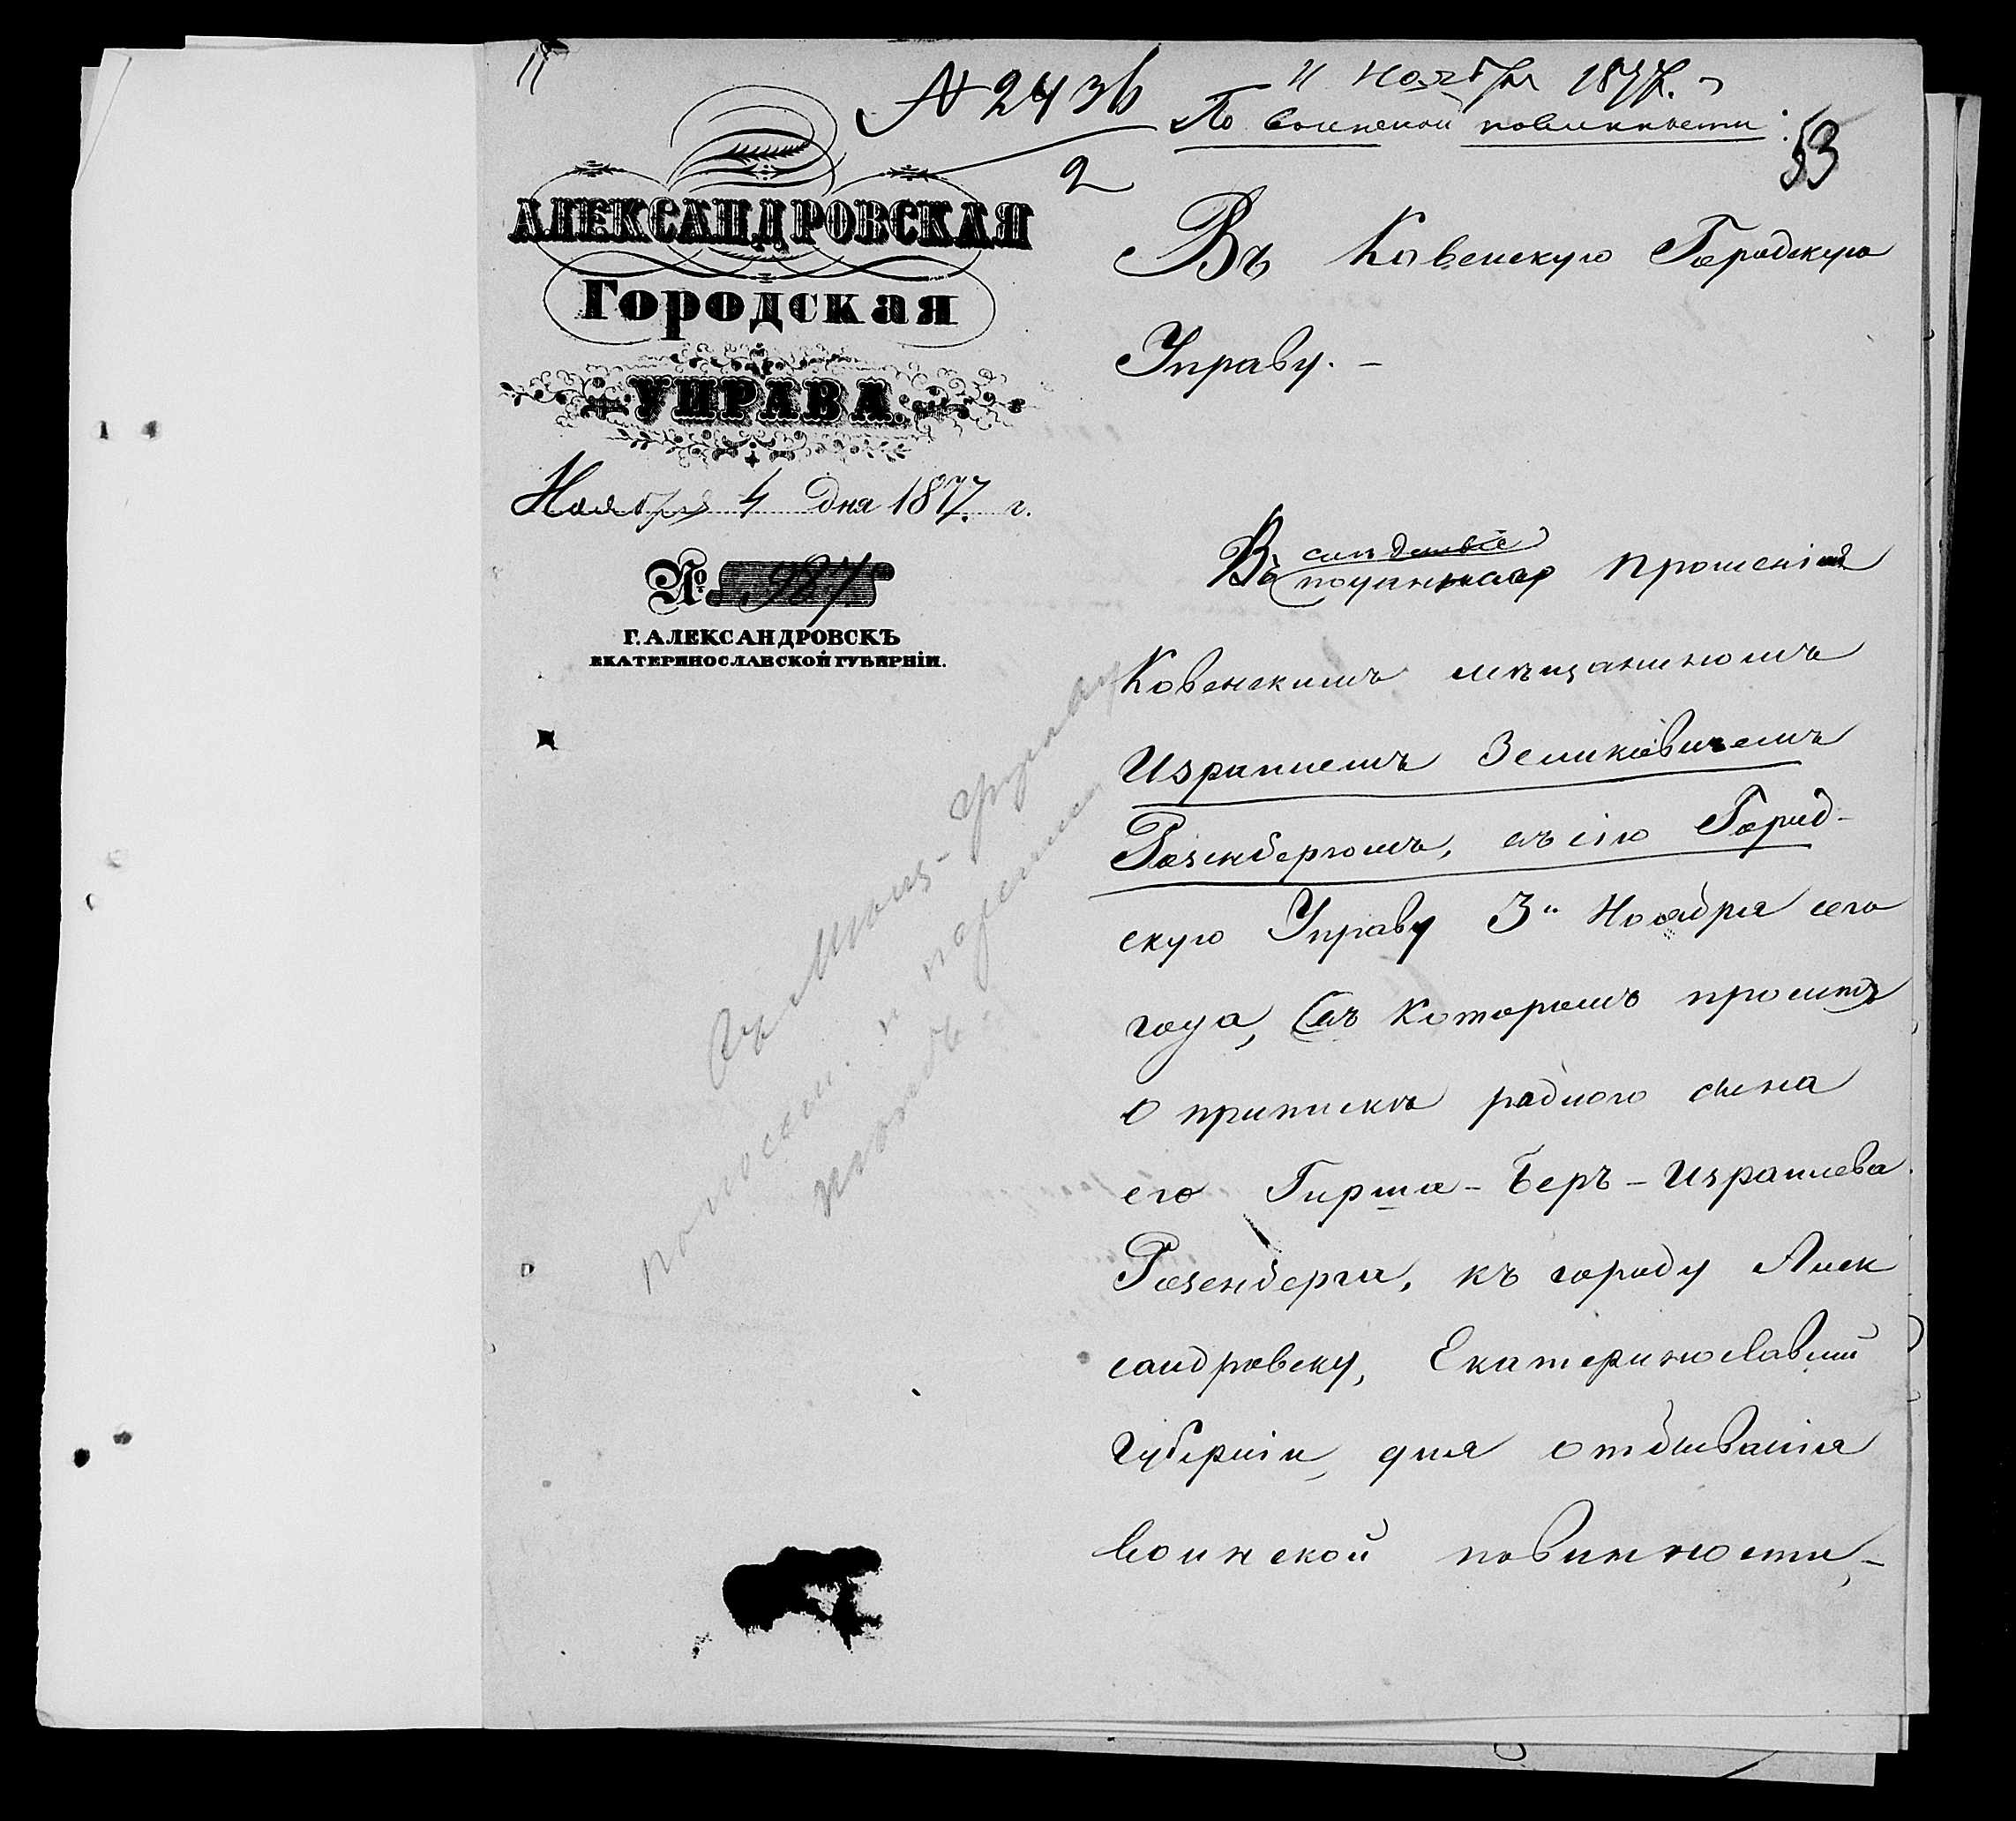 11
№ 2436
2
11 Ноября 1877 г.
По воинской повинности
53
АЛЕКСАНДРОВСКАЯ
Городская
УПРАВА.
Ноября 4 дня 1877 г.
№ 987
Г. АЛЕКСАНДРОВСКЪ
ЕКАТЕРИНОСЛАВСКОЙ ГУБЕРНІИ.
Въ Ковенскую Городскую
Управу. –
Въ слѣдствіе прошенія
Ковенскимъ мѣщаниномъ
Израилемъ Зеликовичемъ
Розенбергомъ, въ сію Город-
скую Управу 3го Ноября сего
года, въ которомъ проситъ
о припискѣ роднаго сына
его Гирша - Беръ - Израилева
Розенберга, къ городу Алек
сандровску, Екатеринославской
губерніи, для отбыванія
воинской повинности, –